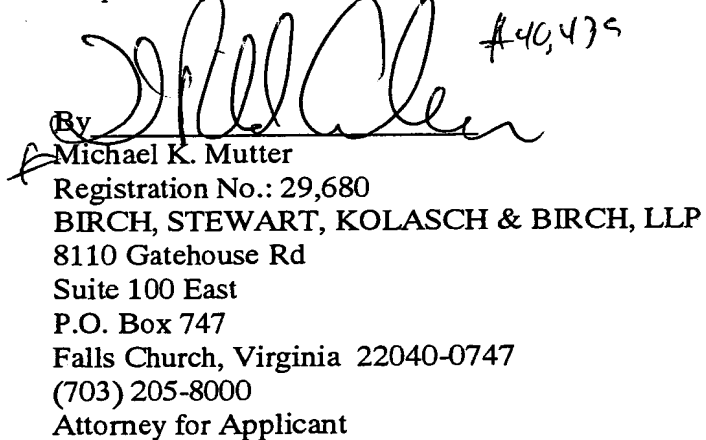 #40,439
By
Michael K. Mutter
Registration No.: 29,680
BIRCH, STEWART, KOLASCH & BIRCH, LLP
8110 Gatehouse Rd
Suite 100 East
P.O. Box 747
Falls Church, Virginia 22040-0747
(703) 205-8000
Attorney for Applicant